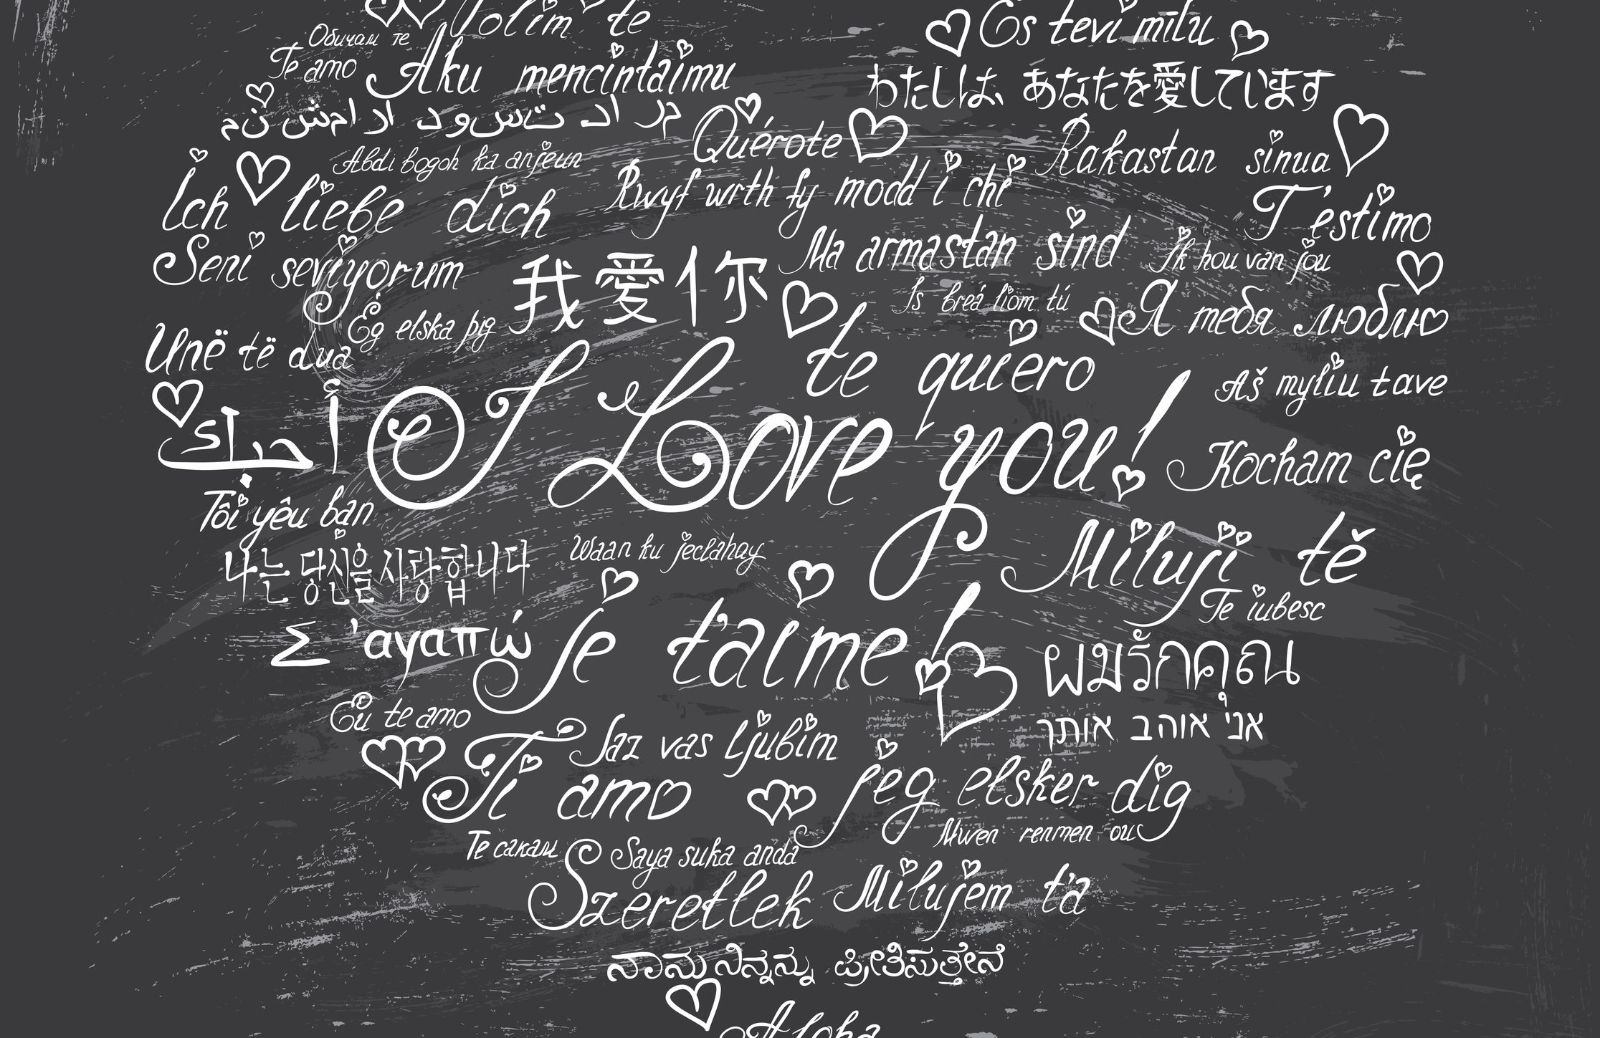 Volim te
Es tevi mīlu
Обичам те
Te amo
Aku mencintaimu
わたしは、あなたを愛しています
من شما را دوست دارم
Quérote
Abdi bogoh ka anjeun
Rakastan sinua
Ich liebe dich
Rwyf wrth fy modd i chi
T'estimo
Seni seviyorum
我爱你
Ma armastan sind
Ik hou van jou
Is breá liom tú
Ég elska þig
Я тебя люблю
Unë të dua
te quiero
Aš myliu tave
أحبك
I Love you!
Kocham cię
Tôi yêu bạn
나는 당신을 사랑합니다
Waan ku jeclahay
Miluji tě
Te iubesc
Σ 'αγαπώ
je t'aime!
ผมรักคุณ
Eu te amo
אני אוהב אותך
Jaz vas ljubim
Ti amo
jeg elsker dig
Mwen renmen ou
Те сакам
Saya suka anda
Szeretlek
Milujem ťa
ನಾನು ನಿನ್ನನ್ನು ಪ್ರೀತಿಸುತ್ತೇನೆ
Aloha